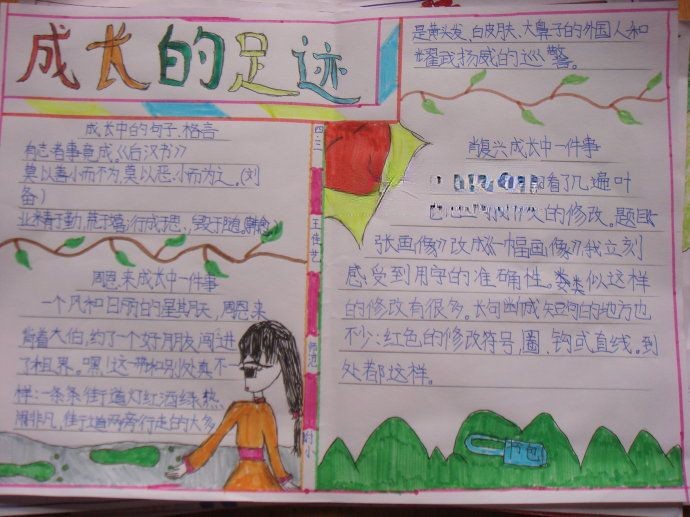 成长的足迹
成长中的句子.格言
有志者事竟成.《后汉书》
莫以善小而不为,莫以恶小而为之。(刘
备)
业精于勤,荒于嬉;行成于思,毁于随。(韩愈)
周恩来成长中一件事
一个风和日丽的星期天,周恩来
背着大伯,约了一个好朋友闯进
了租界。嘿!这一带和别处真不一
样:一条条街道灯红酒绿热
闹非凡,街道两旁行走的大多
四.三
王佳艺
师范
附小
是黄头发、白皮肤、大鼻子的外国人和
耀武扬威的巡警。
肖复兴成长中一件事
看了几遍叶
的修改。题目
张画像》改成《一幅画像》我立刻
感受到用字的准确性。类似这样
的修改有很多。长句删成短句的地方也
不少:红色的修改符号,圈,钩或直线。到
处都这样。
书包